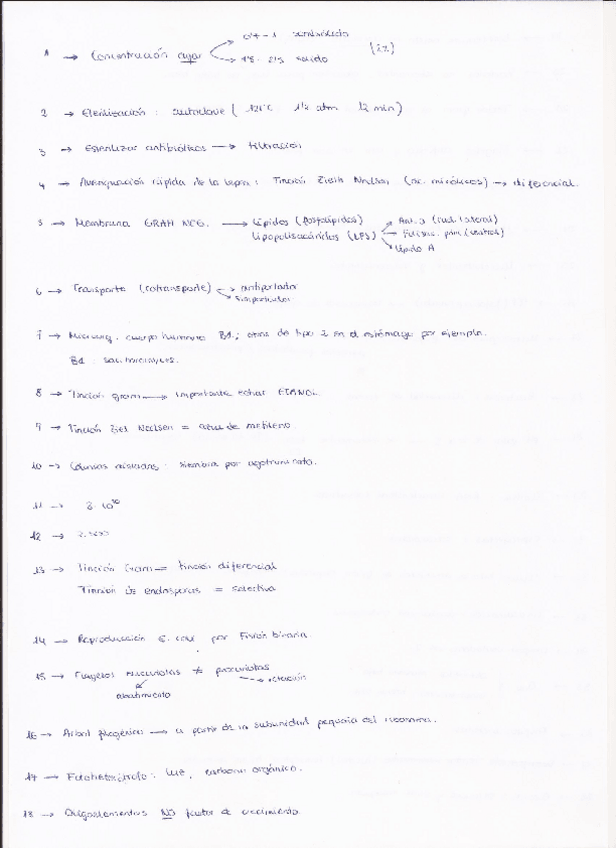 1 → Concentración agar
0'4 - 1 semisólido
1'5 - 2'5 sólido
(2%)
2 → Esterilización : autoclave ( 121ºC 1½ atm 12 min)
3 → Esterilizar antibióticos → filtración
4 → Averiguación rápida de la lepra : Tinción Ziehl Neelsen (ác. micólicos) → diferencial.
5 → Membrana GRAM NEG. → Lípidos (fosfolípidos)
Lipopolisacáridos (LPS)
Ant. O (cad. lateral)
(central)
Lípido A
6 → Transporte (cotransporte)
antiportador
simportador
7 → Microorg. cuerpo humano B1; otros de tipo 2 en el estómago por ejemplo.
B1 : saccharomyces.
8 → Tinción gram → importante echar ETANOL.
9 → Tinción Ziel Neelsen = azul de metileno
10 → Colonias aisladas : siembra por agotamiento.
11 →
12 →
13 → Tinción Gram = tinción diferencial
Tinción de endosporas = selectiva
14 → Reproducción E. coli por Fisión binaria
15 → Flagelos eucariotas ≠ procariotas
rotación
abatimiento
16 → Arbol filogénico → a partir de la subunidad pequeña del ribosoma.
17 → Fotoheterótrofo : luz, carbono orgánico.
18 → Oligoelementos NO factor de crecimiento.